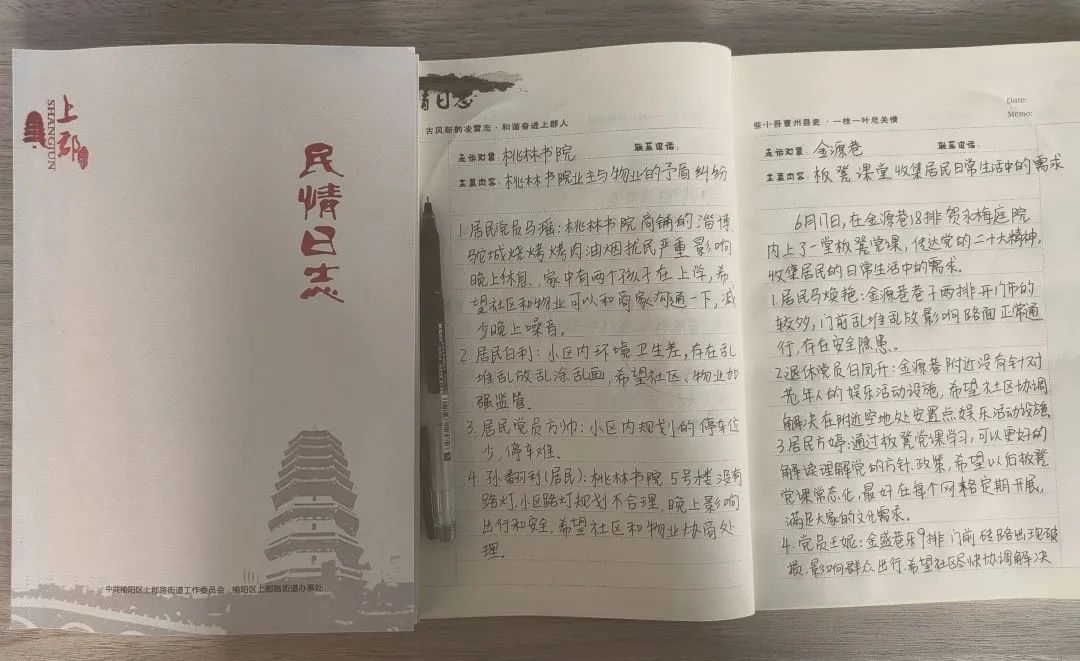 上郡
SHANGJUN
民情日志
中共榆阳区上郡路街道工作委员会 榆阳区上郡路街道办事处
情日志
古风新韵凌霄志·和谐奋进上郡人
走访对象：桃林书院 联系电话：
主要内容：桃林书院业主与物业的矛盾纠纷
1.居民党员马瑶：桃林书院商铺的淄博
驼城烧烤烤肉油烟扰民严重影响
晚上休息、家中有两个孩子在上学，希
望社区和物业可以和商家沟通一下，减
少晚上噪音。
2.居民白利：小区内环境卫生差，存在乱
堆乱放乱涂乱画，希望社区、物业加
强监管。
3.居民党员方帅：小区内规划的停车位
少，停车难。
4.孙翻利(居民)：桃林书院5号楼没有
路灯，小区路灯规划不合理，晚上影响
出行和安全，希望社区和物业协商处
理。
Date:
Memo:
些小吾曹州县吏·一枝一叶总关情
走访对象：金源巷 联系电话：
主要内容：板凳课堂收集居民日常生活中的需求
6月17日，在金源巷18排贺永梅庭院
内上了一堂板凳党课，传达党的二十大精神，
收集居民的日常生活中的需求。
1.居民马焕艳：金源巷巷子两排开门市的
较多，门前乱堆乱放影响路面正常通
行，存在安全隐患。
2.退休党员白凤开：金源巷附近没有针对
老年人的娱乐活动设施，希望社区协调
解决在附近空地处安置点娱乐活动设施
3.居民方婷：通过板凳党课学习，可以更好的
解读理解党的方针、政策，希望以后板凳
党课常态化，最好在每个网格定期开展，
满足大家的文化需求。
4.党员王妮：金盛巷东9排门前砖路出现破
损，影响群众出行，希望社区尽快协调解决